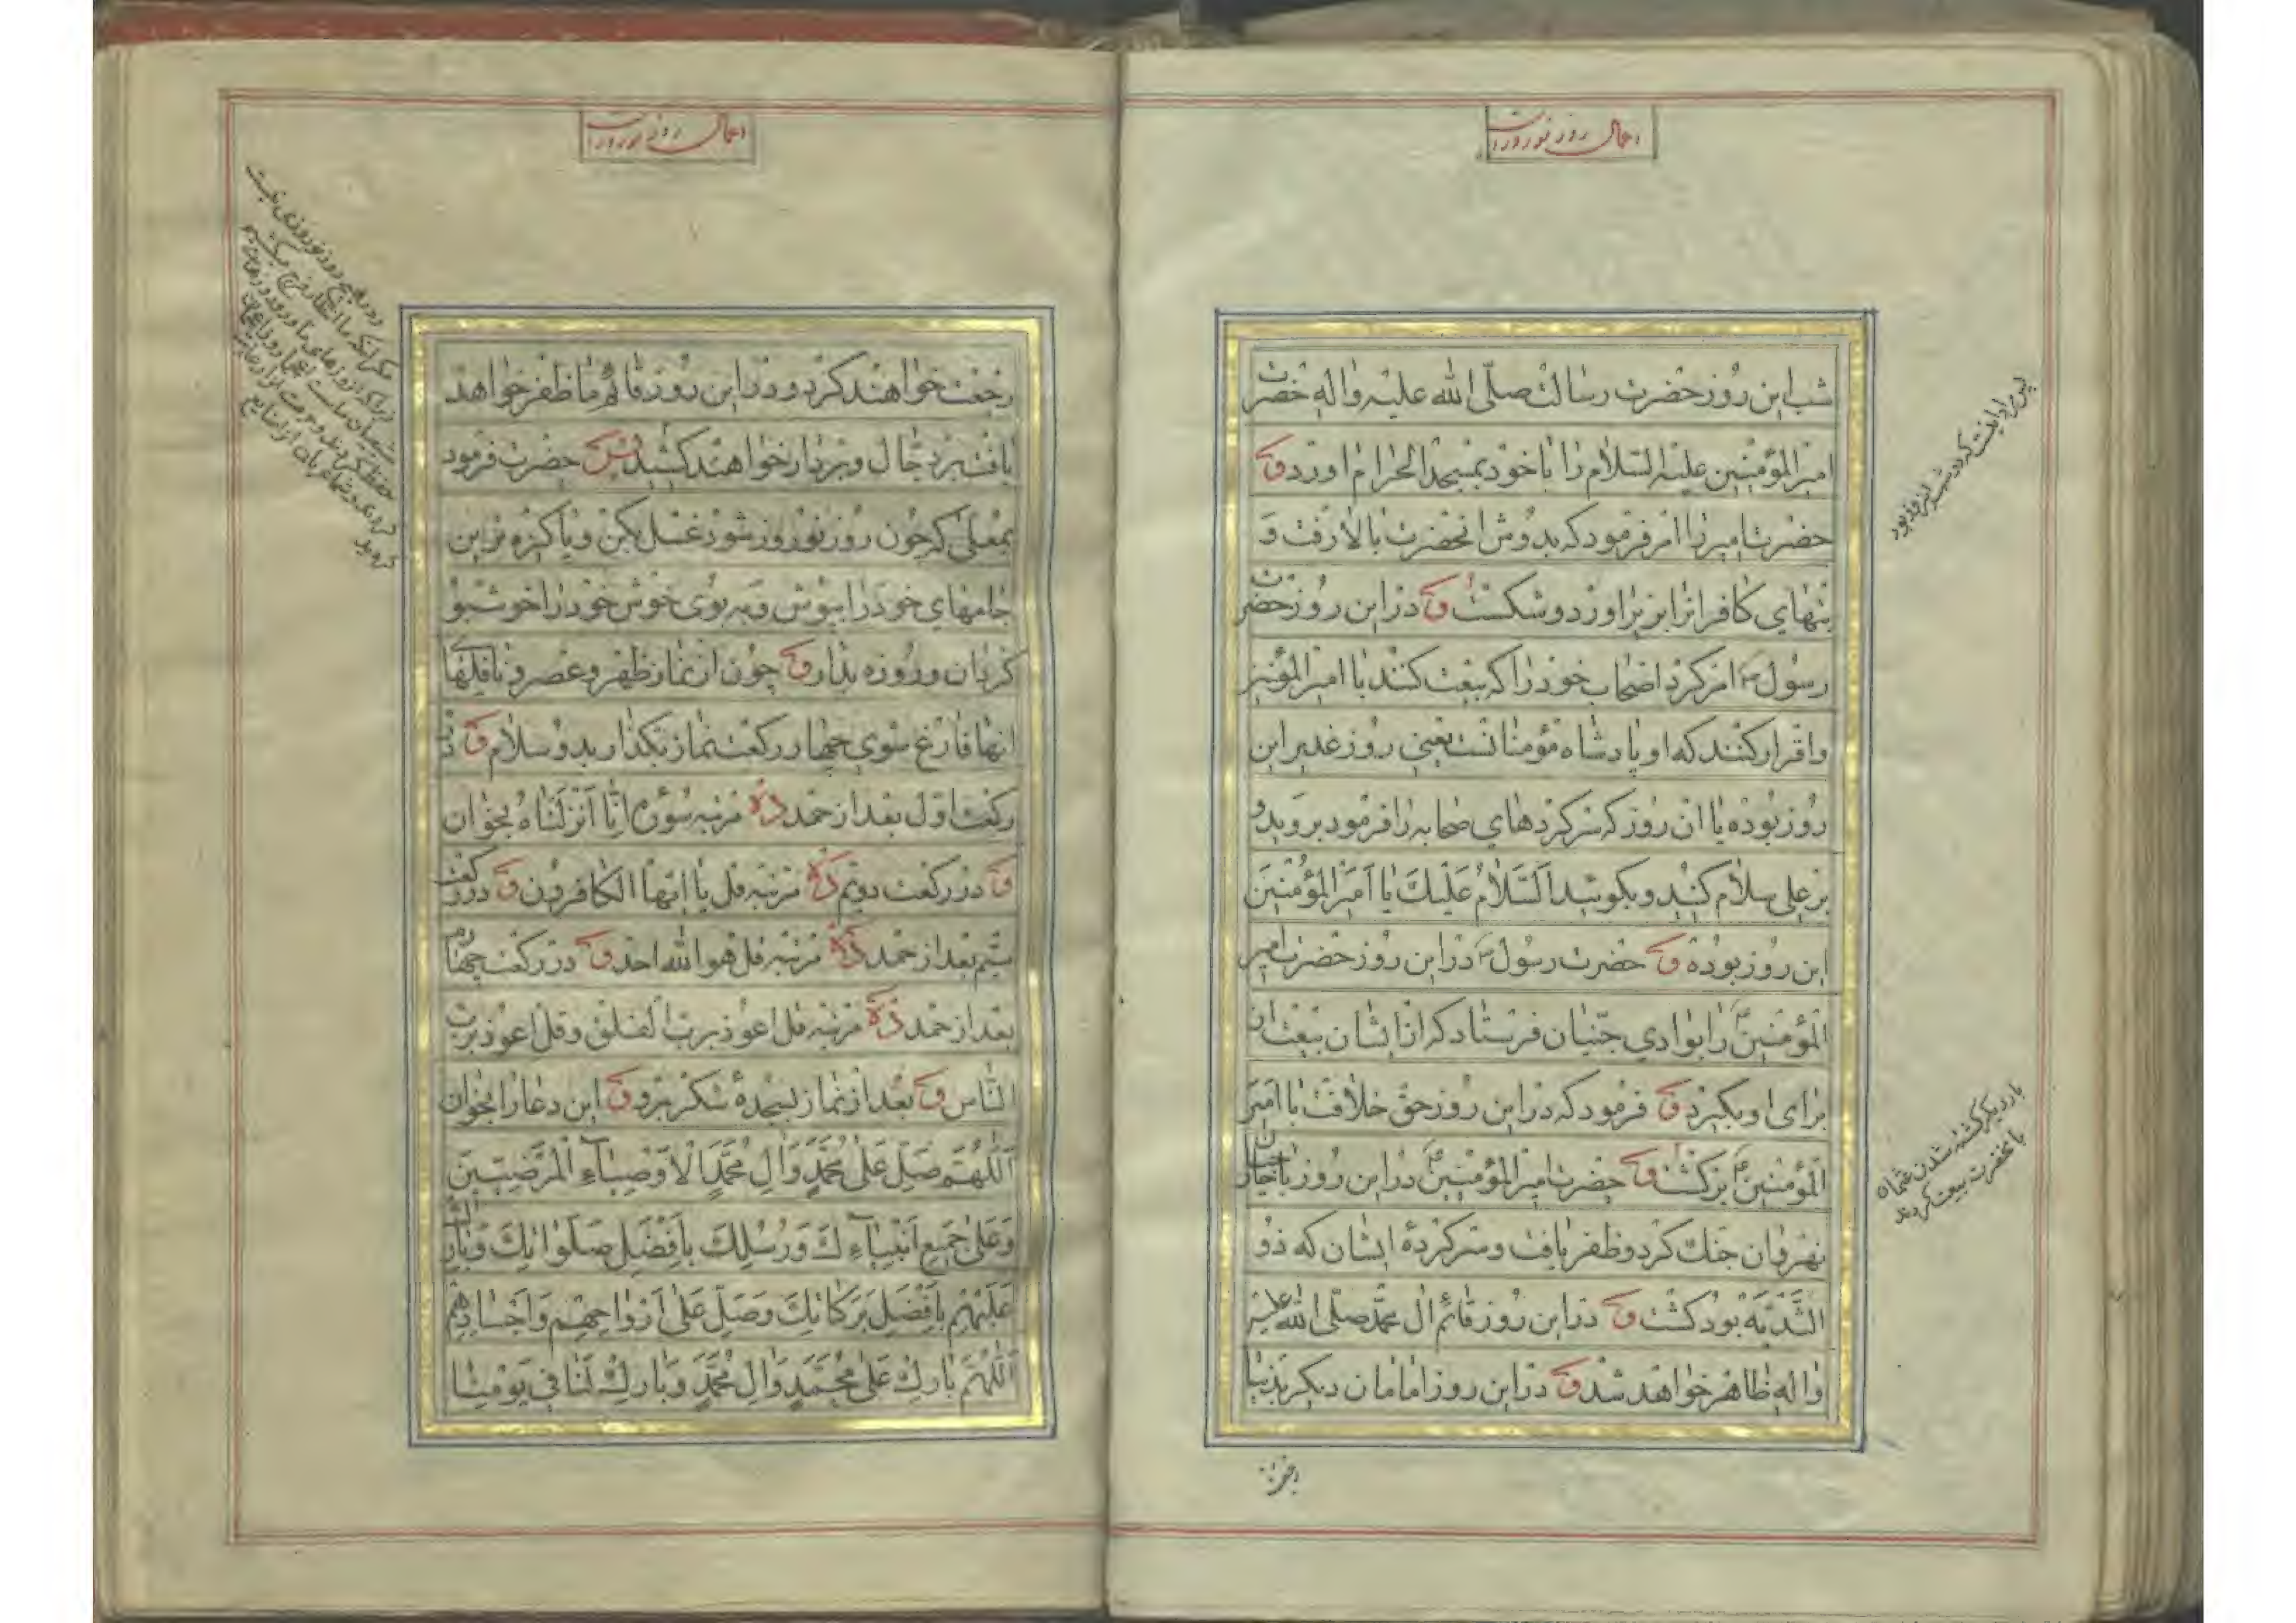 اعمال روز نوروز است
شب این روز حضرت رسالت صلّی الله علیه واله حضرت
امیر المؤمنین علیه السّلام را با خود بمسجد الحرام اورد و
حضرت امیر را امر فرمود که بدوش انحضرت بالا رفت و
بتهای کافرانرا بزیر اورد و شکست و در این روز حضرت
رسول ص امر کرد اصحاب خود را که بیعت کنند با امیر المؤمنین
واقرار کنند که او پادشاه مؤمنانست یعنی روز غدیر این
روز بوده یا ان روز که سرکردهای صحابه را فرمود بروید و
بر علی سلام کنید و بکوئید اَلسَّلامُ عَلَیْكَ یا اَمیرَ المُؤْمِنینَ
این روز بوده و حضرت رسول ص در این روز حضرت امیر
المؤمنین ع را بوادی جنّیان فرستاد که از ایشان بیعت ان
برای او بکیرد و فرمود که در این روز حق خلافت با امیر
المؤمنین ع برکشت و حضرت امیر المؤمنین ع در این روز با خارجیان
نهروان جنك کرد و ظفر یافت و سرکردهٔ ایشان که ذو
الثّدیّه بود کشت و در این روز قائم ال محمّد صلّی الله علیه
واله ظاهر خواهد شد و در این روز امامان دیکر بدنیا
بار دیکر کشته شدن عثمان
با نحضرت بیعت کردند
رجعت
اعمال روز نوروز است
رجعت خواهند کرد و در این روز قائم ما ظفر خواهد
یافت بر دجّال و بر دار خواهند کشید پس حضرت فرمود
بمعلّی که چون روز نوروز شود غسل بکن و پاکیزه ترین
جامهای خود را بپوش و به بوی خوش خود را خوشبو
کردان و روزه بدار و چون از نماز ظهر و عصر و نافلهای
انها فارغ شوی چهار رکعت نماز بکذار بدو سلام و در
رکعت اوّل بعد از حمد ده مرتبه سورهٔ اِنّا اَنْزَلْناهُ بخوان
و در رکعت دویّم ده مرتبه قل یا ایّها الکافرون و در رکعت
سیّم بعد از حمد ده مرتبه قل هو الله احد و در رکعت چهارم
بعد از حمد ده مرتبه قل اعوذ بربّ الفلق و قل اعوذ بربّ
النّاس و بعد از نماز بسجدهٔ شکر برو و این دعا را بخوان
اَللّهُمَّ صَلِّ عَلی مُحَمَّدٍ وَالِ مُحَمَّدٍ الْاَوْصِیاءِ الْمَرْضِیّینَ
وَعَلی جَمیعِ اَنْبِیاءِكَ وَرُسُلِكَ بِاَفْضَلِ صَلَواتِكَ وَبارِكْ
عَلَیْهِمْ بِاَفْضَلِ بَرَکاتِكَ وَصَلِّ عَلی اَرْواحِهِمْ وَاَجْسادِهِمْ
اَللّهُمَّ بارِكْ عَلی مُحَمَّدٍ وَالِ مُحَمَّدٍ وَبارِكْ لَنا فی یَوْمِنا
ودر هیچ روز نوروزی نیست
مکر انکه ما انتظار فرج میکشیم